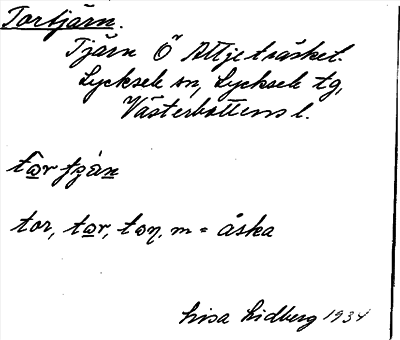 Tortjärn.
Tjärn Ö Attjeträsket.
Lycksele sn, Lycksele tg,
Västerbottens l.
tor, tor, ton, m = åska
Lisa Lidberg 1934